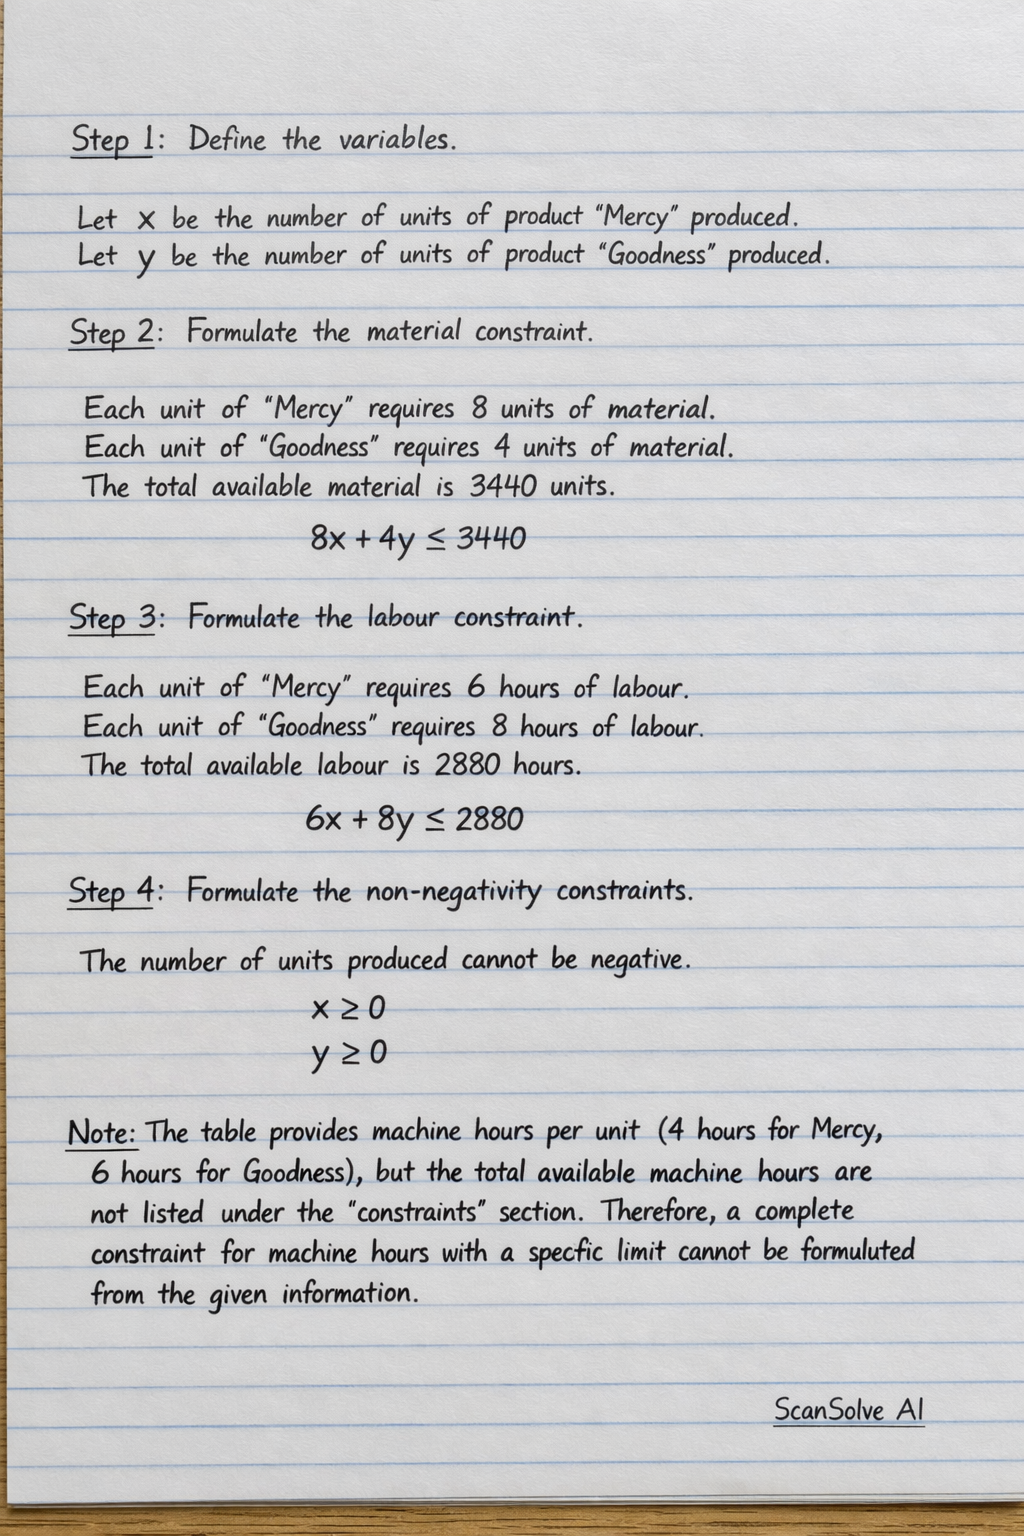 Step 1: Define the variables.
Let x be the number of units of product “Mercy” produced.
Let y be the number of units of product “Goodness” produced.
Step 2: Formulate the material constraint.
Each unit of “Mercy” requires 8 units of material.
Each unit of “Goodness” requires 4 units of material.
The total available material is 3440 units.
8x + 4y ≤ 3440
Step 3: Formulate the labour constraint.
Each unit of “Mercy” requires 6 hours of labour.
Each unit of “Goodness” requires 8 hours of labour.
The total available labour is 2880 hours.
6x + 8y ≤ 2880
Step 4: Formulate the non-negativity constraints.
The number of units produced cannot be negative.
x ≥ 0
y ≥ 0
Note: The table provides machine hours per unit (4 hours for Mercy,
6 hours for Goodness), but the total available machine hours are
not listed under the “constraints” section. Therefore, a complete
constraint for machine hours with a specfic limit cannot be formuluted
from the given information.
ScanSolve AI